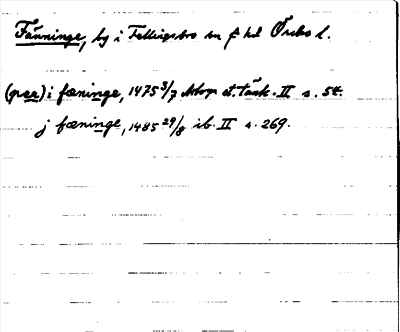 Fänninge, by i Fellingsbro sn o hd Örebro l.
(prær) i fæninge, 1475 3/7 Arboga st. tänk. II s. 5
j fæninge, 1485 29/8 ib. II s. 269.